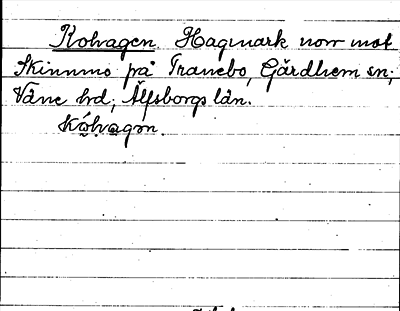 Kolvagen. Hagmark norr mot
Skinnmo på Tranebo, Gärdhem sn,
Väne hd, Älfsborgs län.